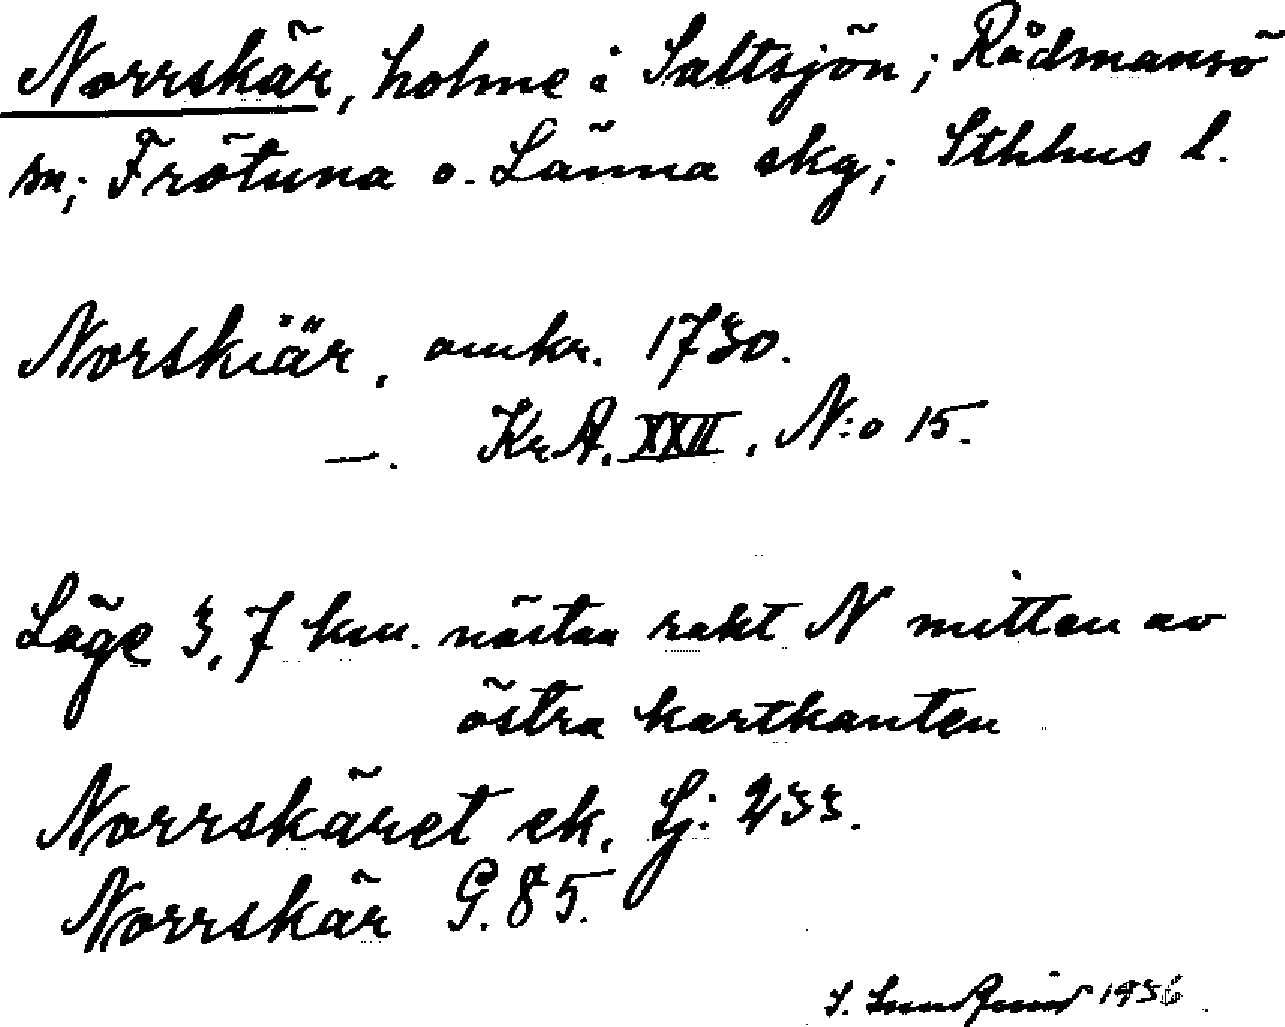 Norrskär, holme i Saltsjön; Rådmansö
sn; Frötuna o. Länna skg; Sthlms l.
Norskiär, omkr. 1730.
—. KrA. XXII, N:o 15.
Läge 3,7 km. nästan rakt N mitten av
östra kartkanten
Norrskäret ek. Lj: 233.
Norrskär G. 85.
S. 1936